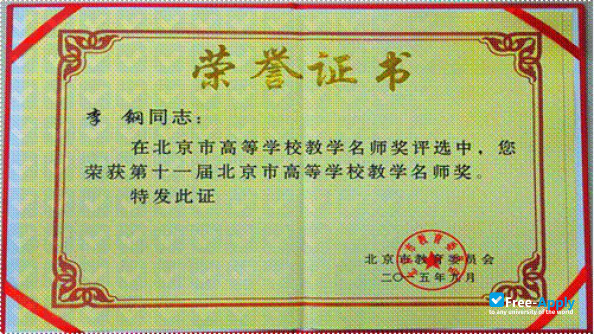 荣誉证书
李 钢同志：
在北京市高等学校教学名师奖评选中，您
荣获第十一届北京市高等学校教学名师奖。
特发此证
北京市教育委员会
二〇一五年九月
Free-Apply
to any university of the world